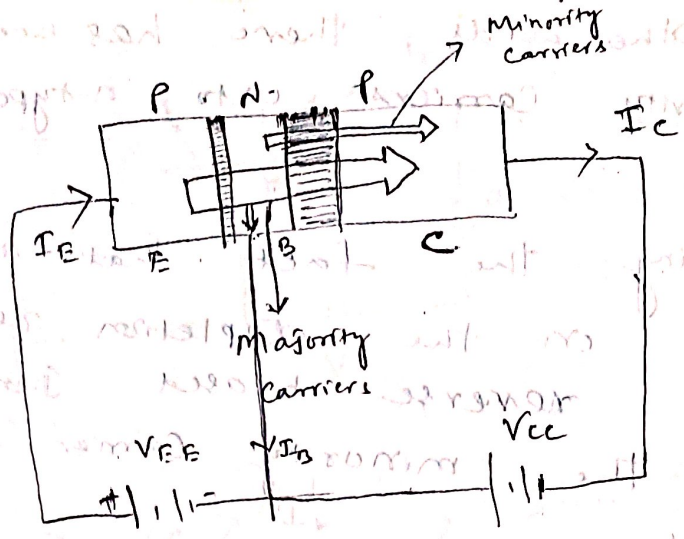 Minority
carriers
P N P
I C
I E
E B C
Majority
carriers
I B
V E E
V cc
+ -